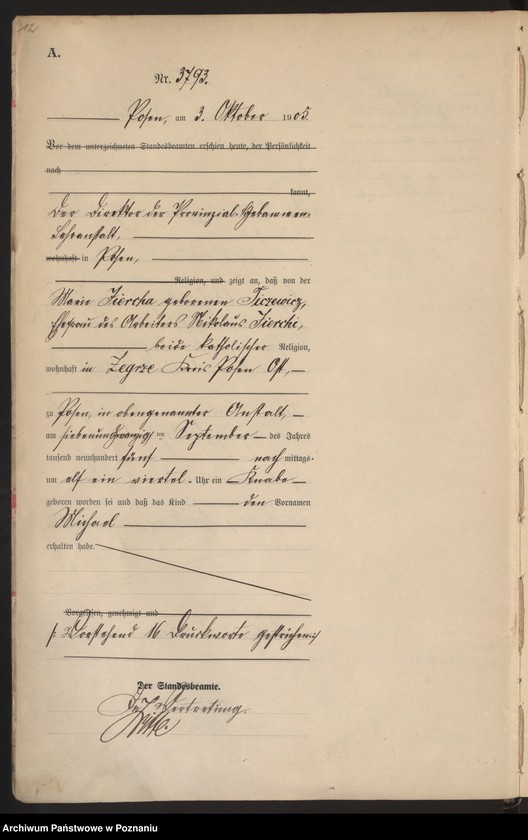 12
A.
Nr. 3793.
Posen, am 3. Oktober 1905.
Vor dem unterzeichneten Standesbeamten erschien heute, der Persönlichkeit
nach
kannt,
Der Direktor der Provinzial-Hebammen-
Lehranstalt,
wohnhaft in Posen,
Religion, und zeigt an, daß von der
Marie Jiercha geborenen Ticzewicz,
Ehefrau des Arbeiters Nikolaus Jierchi,
beide katholischer Religion,
wohnhaft in Zegrze Kreis Posen Ost,
zu Posen, in obengenannter Anstalt,
am siebenundzwanzigsten September des Jahres
tausend neunhundert fünf nach mittags
um elf ein viertel Uhr ein Knabe
geboren worden sei und daß das Kind den Vornamen
Michael
erhalten habe.
Vorgelesen, genehmigt und
Vorstehend 16 Druckworte gestrichen
Der Standesbeamte.
In Vertretung.
Archiwum Państwowe w Poznaniu